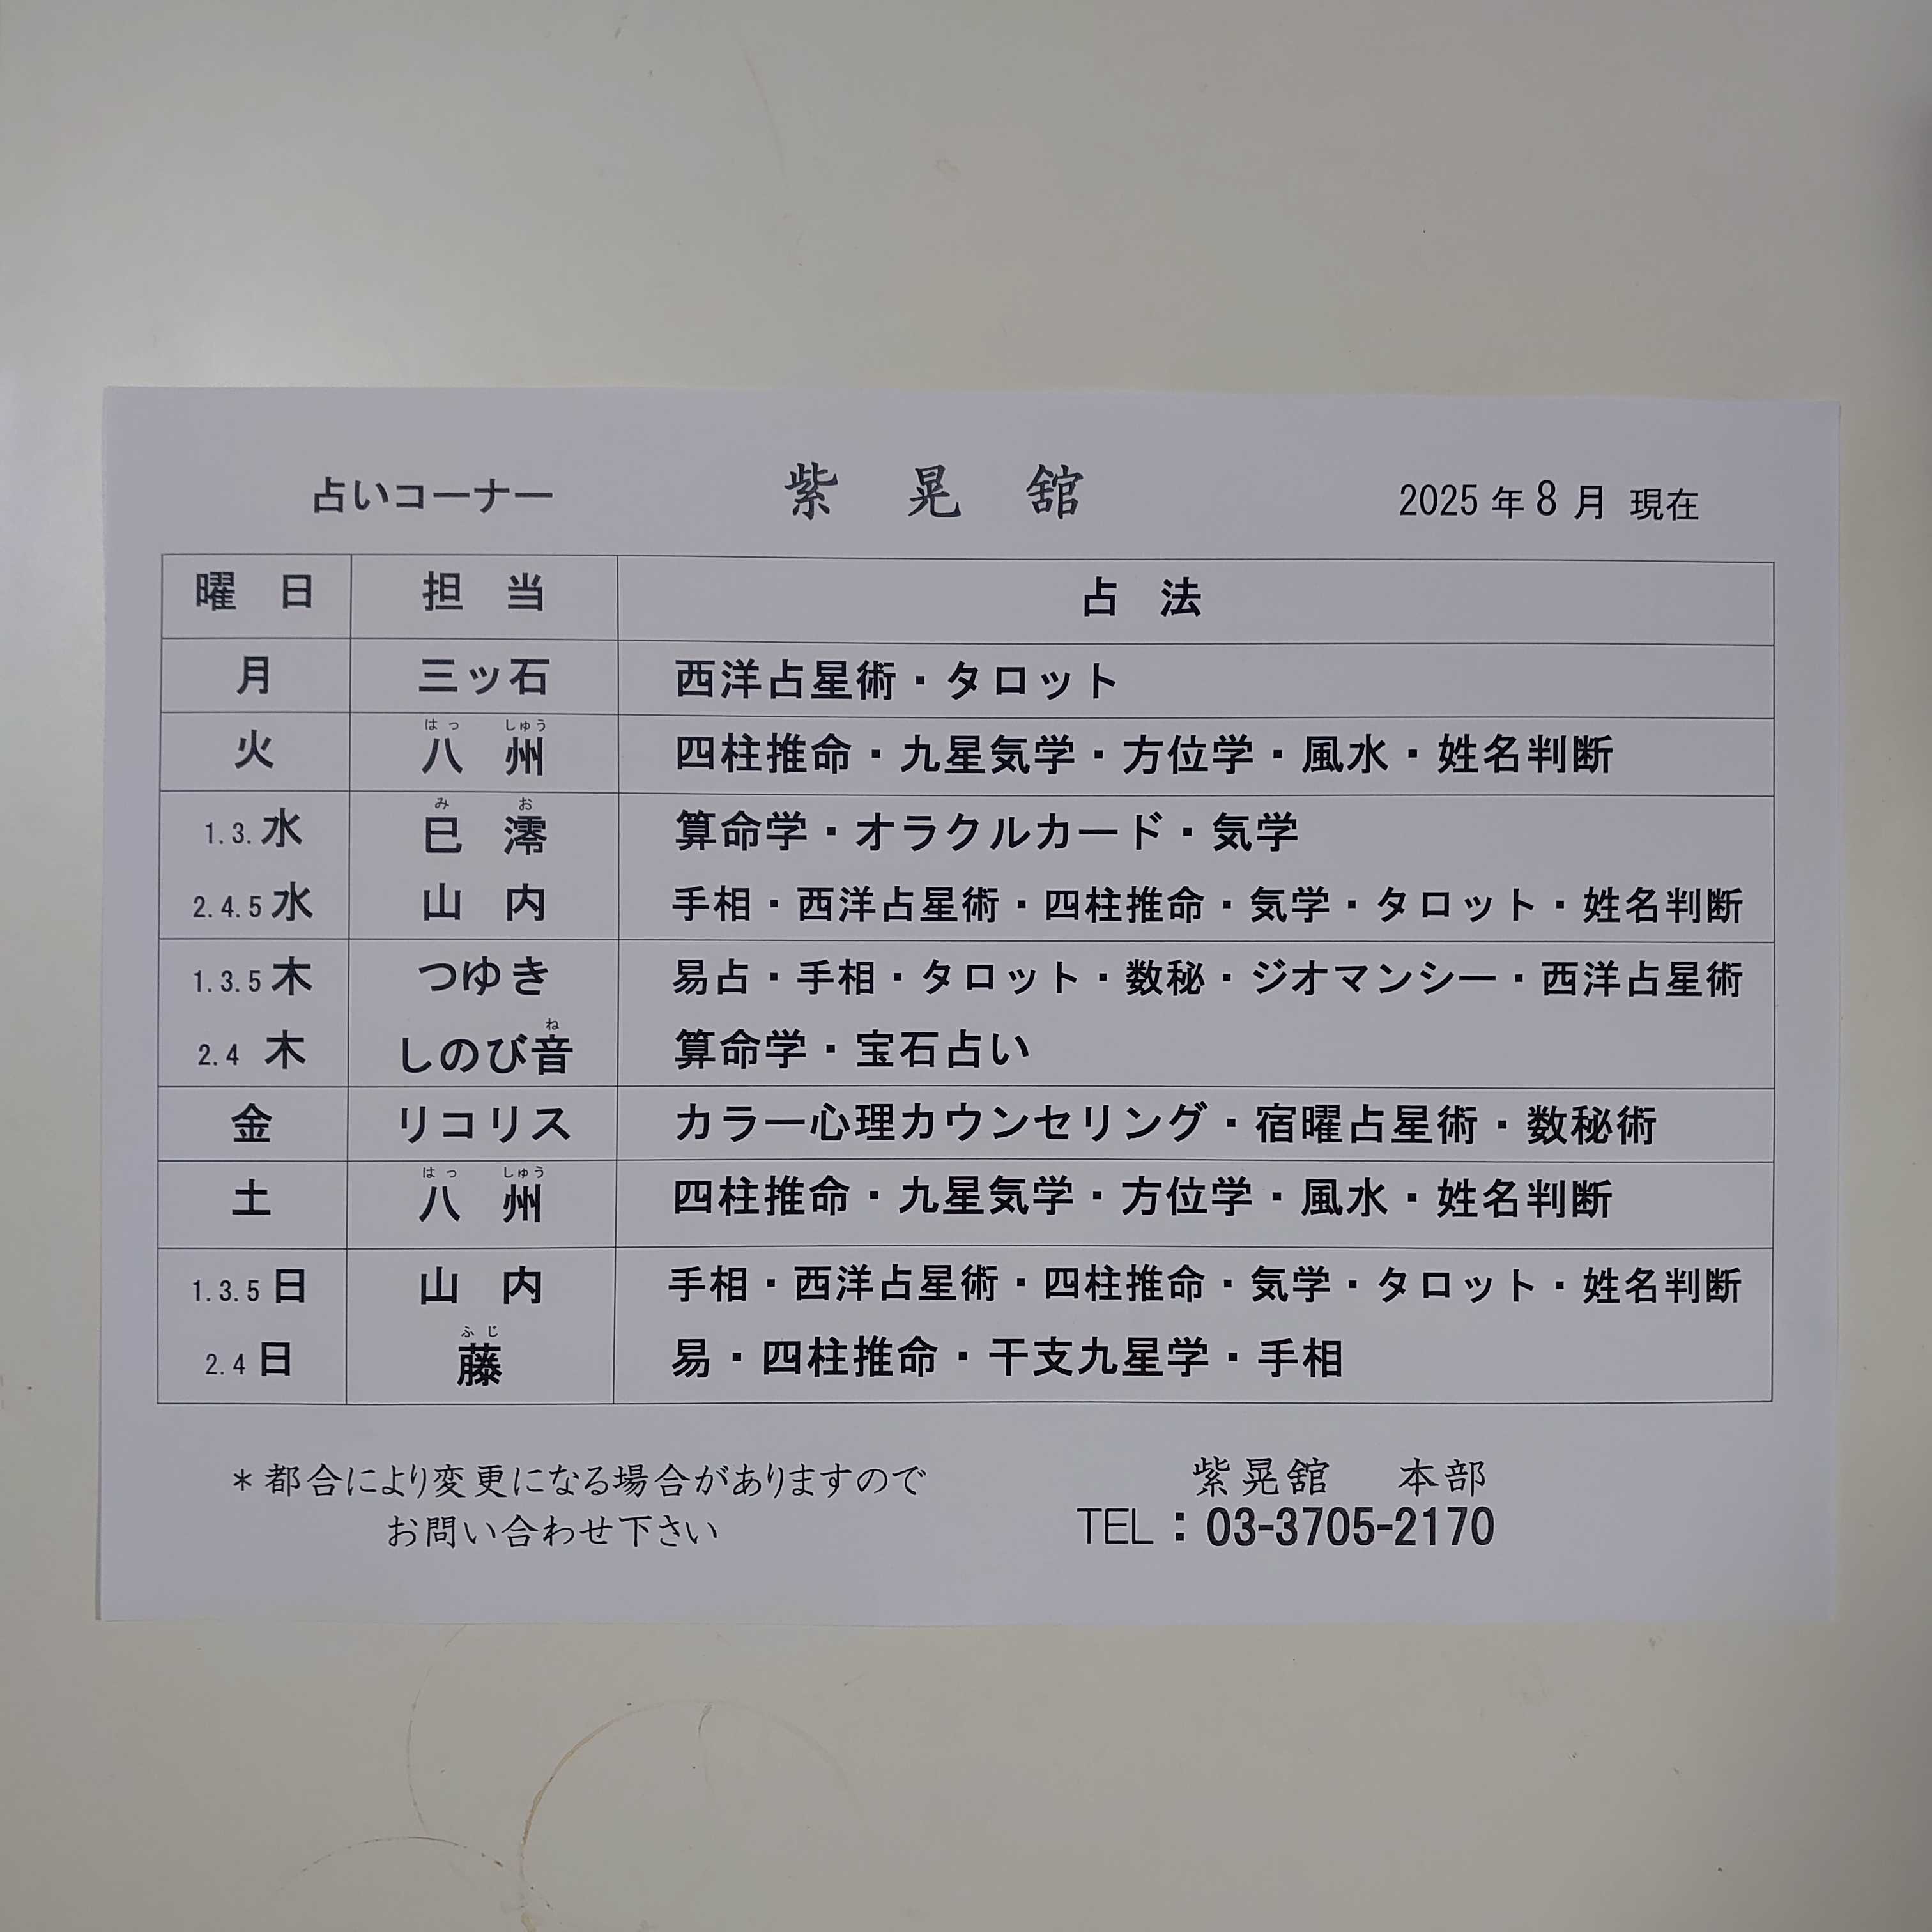 占いコーナー 紫晃舘 2025年8月現在
曜日 担当 占法
月 三ッ石 西洋占星術・タロット
はっ しゅう
火 八州 四柱推命・九星気学・方位学・風水・姓名判断
み お
1.3.水 巳澪 算命学・オラクルカード・気学
2.4.5水 山内 手相・西洋占星術・四柱推命・気学・タロット・姓名判断
1.3.5木 つゆき 易占・手相・タロット・数秘・ジオマンシー・西洋占星術
ね
2.4 木 しのび音 算命学・宝石占い
金 リコリス カラー心理カウンセリング・宿曜占星術・数秘術
はっ しゅう
土 八州 四柱推命・九星気学・方位学・風水・姓名判断
1.3.5日 山内 手相・西洋占星術・四柱推命・気学・タロット・姓名判断
ふじ
2.4日 藤 易・四柱推命・干支九星学・手相
＊都合により変更になる場合がありますので
お問い合わせ下さい
紫晃舘 本部
TEL：03-3705-2170